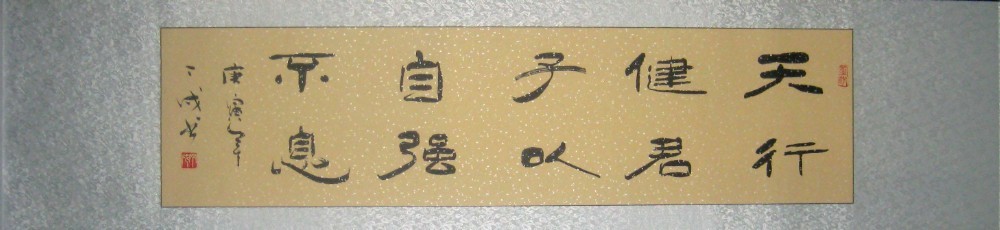 天行
健君
子以
自强
不息
庚寅年
丁成书